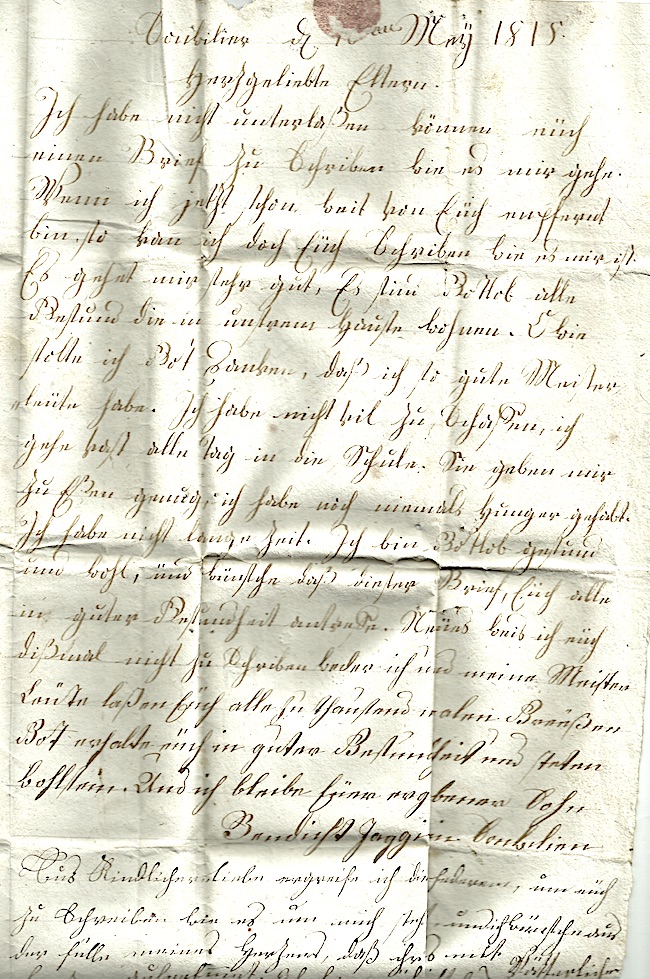 Sonbilier d Mey 1818.
Herzgeliebte Eltern.
Ich habe nicht unterlaßen können eüch
einen Brief zu Schriben wie es mir gehe.
Wenn ich jetzt schon weit von Eüch empfernt
bin, so kan ich doch Eüch Schriben wie es mir ist.
Es gehet mir sehr gut, Es sind Gottlob alle
Gesund die in unsrem Hause wohnen. O wie
solte ich Got Danken, daß ich so gute Meister
leüte habe. Ich habe nicht vil zu Schaffen, ich
gehe vast alle Tag in die Schule. Sie geben mir
zu Eßen genug, ich habe noch niemals Hunger gehabt.
Ich habe nicht lange Zeit. Ich bin Gottlob gesund
und wohl, und wünsche daß dieser Brief, Eüch alle
in guter Gesundheit antreffe. Neües weis ich eüch
dißmal nicht zu Schriben weder ich und meine Meister
Leüte laßen Eüch alle zu thausend malen Greüßen
Got erhalte eüch in guter Gesundheit und steten
wohlsein. Und ich bleibe Eüer ergebener Sohn
Bendicht Jaggi in Sonbilien
Aus Kindlicher liebe ergreife ich die federen, um eüch
zu Schreiben wie es um mich steh, und ich wünsche aus
der fülle meines Herzens, daß ihrs mit